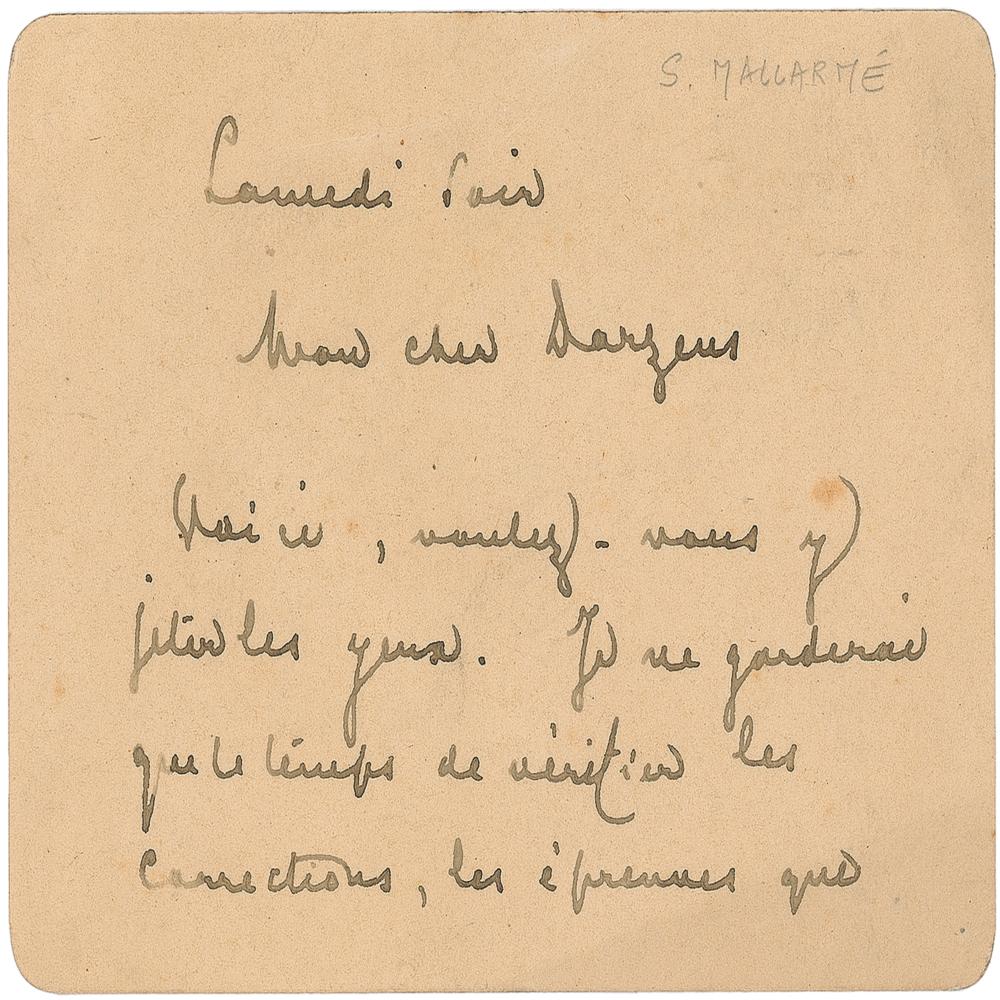 S. MALLARMÉ
Samedi soir
Mon cher Darzens
Voici, voulez-vous y
jeter les yeux. Je ne garderai
que le temps de vérifier les
corrections, les épreuves que